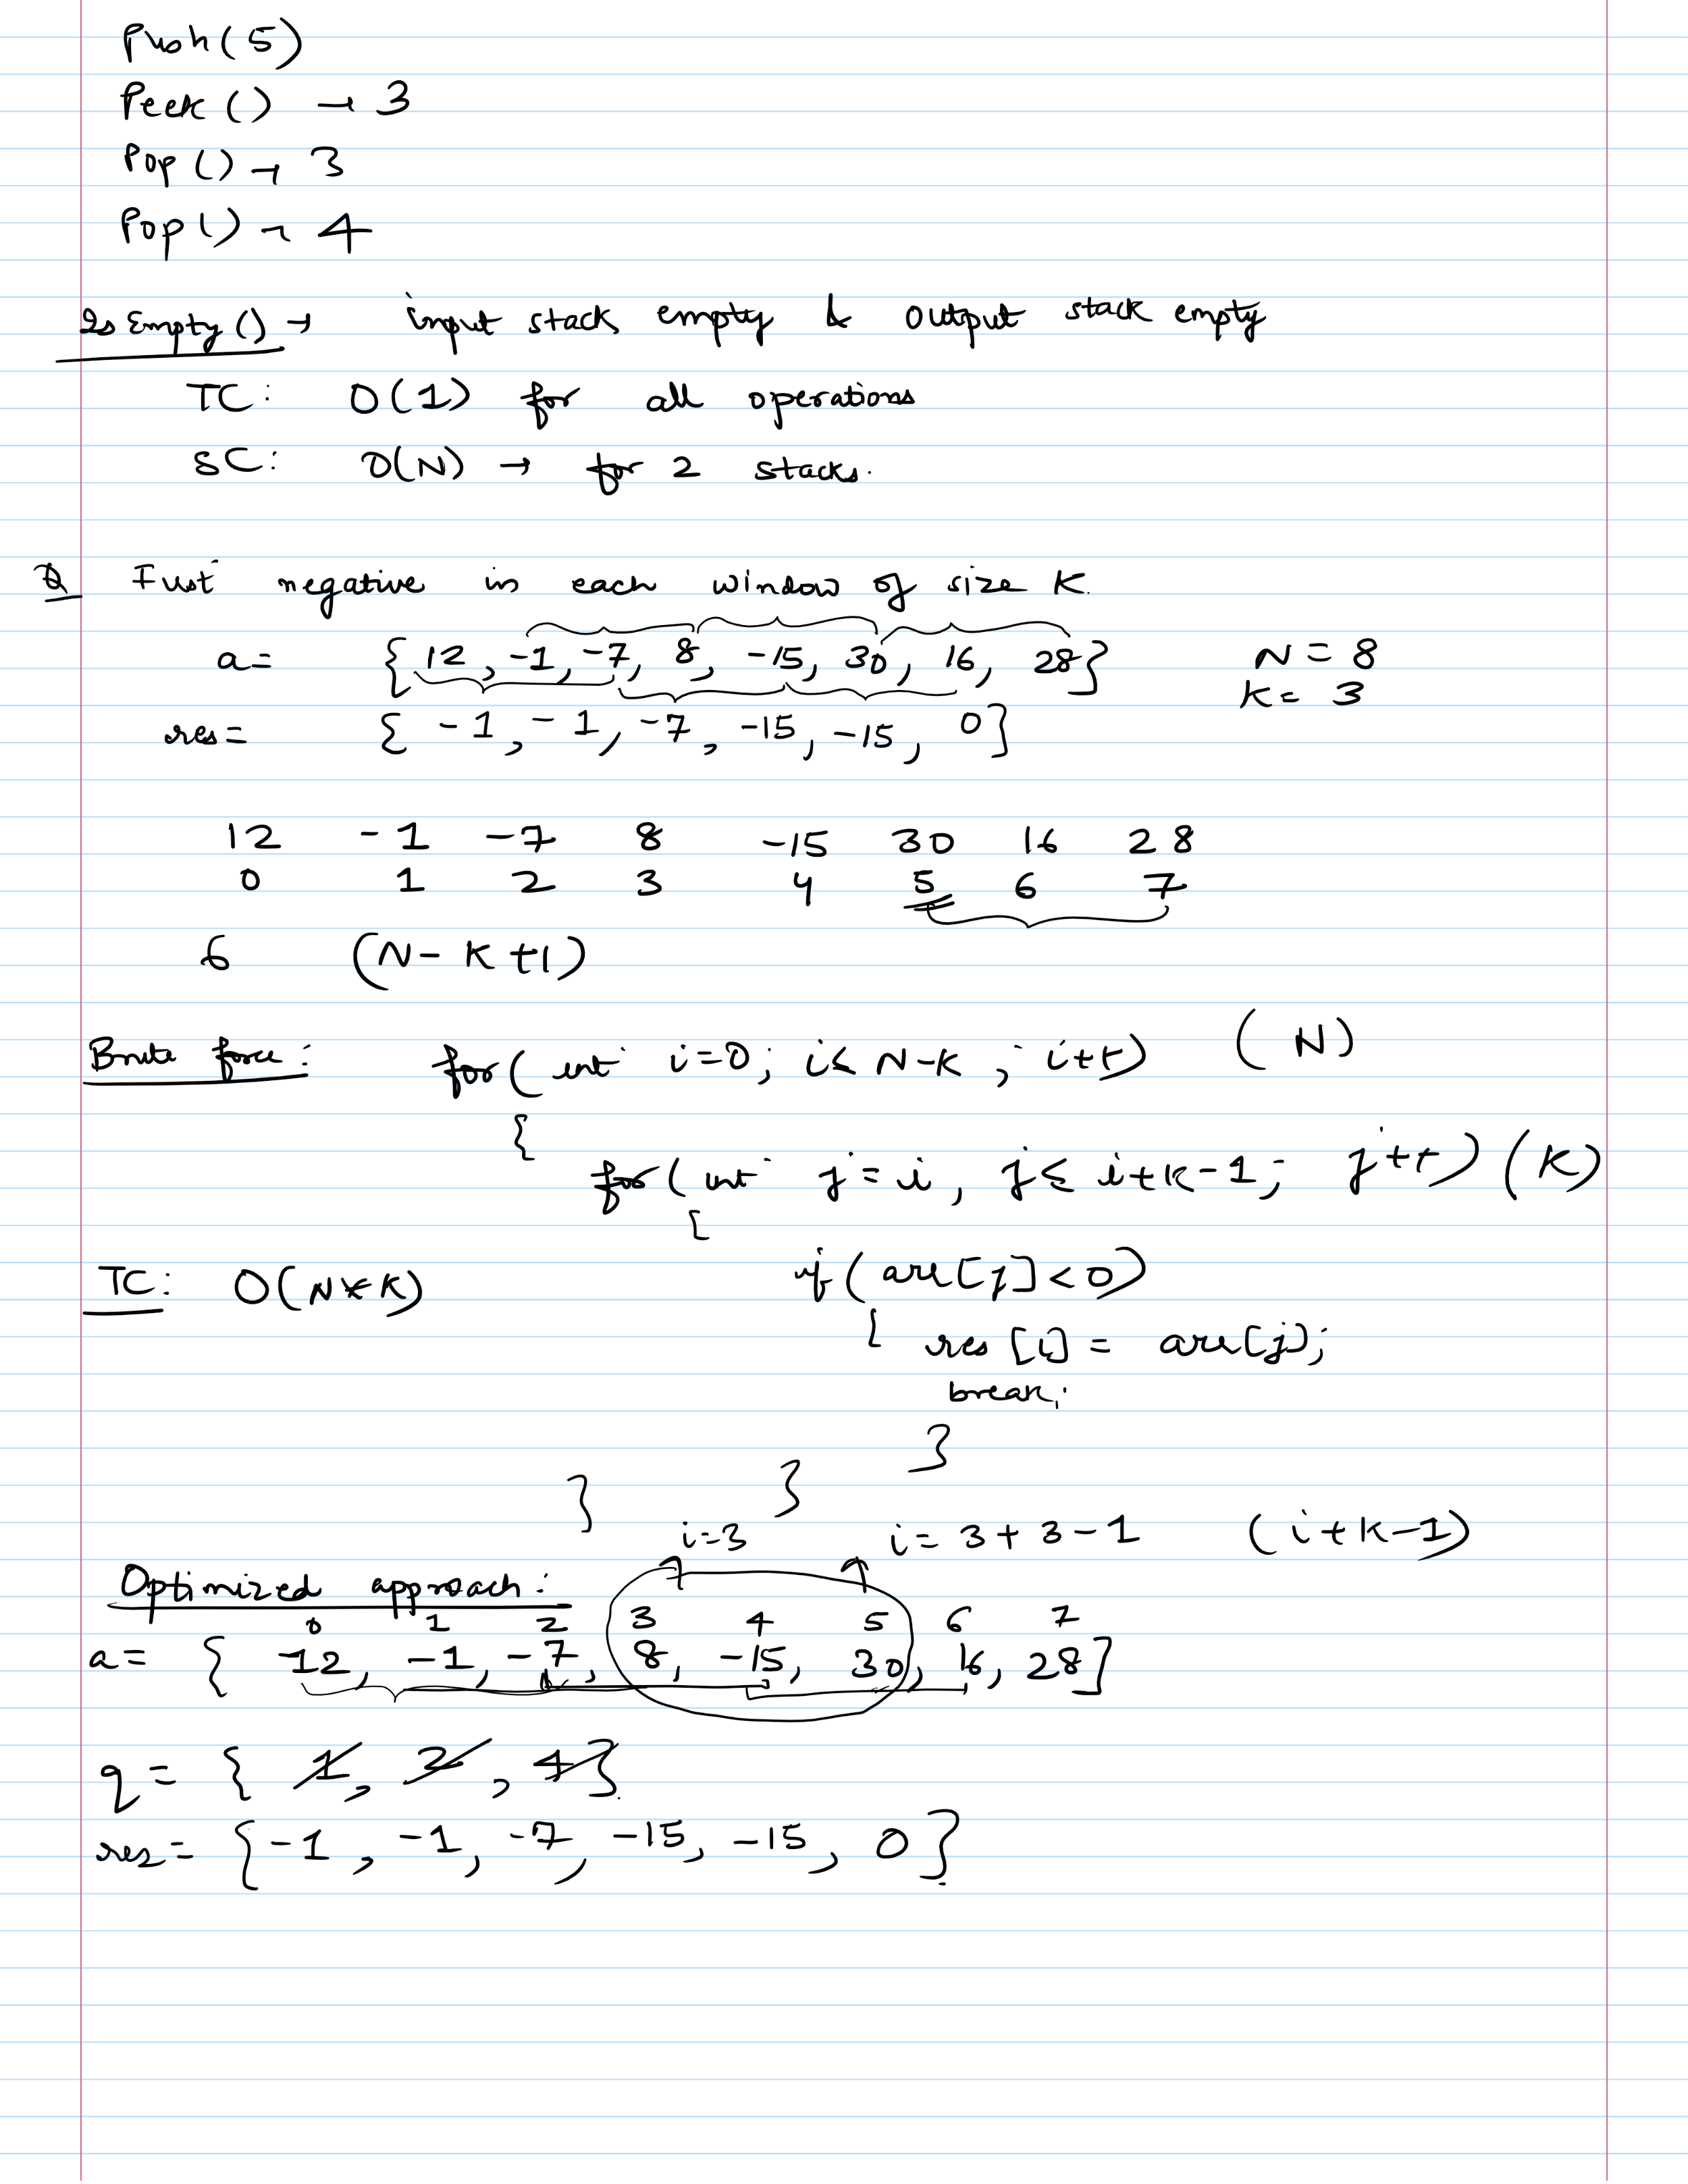 Push(5)
Peek() → 3
Pop() → 3
Pop() → 4
IsEmpty() → input stack empty & output stack empty
TC: O(1) for all operations
SC: O(N) → for 2 stacks.
Q First negative in each window of size K.
a= {12, -1, -7, 8, -15, 30, 16, 28} N = 8
K = 3
res= { -1, -1, -7, -15, -15, 0}
12 -1 -7 8 -15 30 16 28
0 1 2 3 4 5 6 7
6 (N-K+1)
Brute force: for( int i=0; i≤ N-K ; i++) (N)
{
for( int j=i, j≤ i+k-1; j++) (K)
{
TC: O(N*K) if(arr[j]<0)
{ res[i] = arr[j];
break;
}
} }
i=3 i= 3+3-1 (i+k-1)
Optimized approach:
0 1 2 3 4 5 6 7
a= { -12, -1, -7, 8, -15, 30, 16, 28}
q = { 1, 2, 4}
res= {-1, -1, -7, -15, -15, 0}